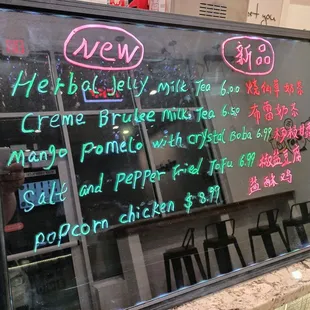 New 新品
Herbal Jelly Milk Tea 6.00 烧仙草奶茶
Creme Brulee Milk Tea 6.50 布蕾奶茶
Mango Pomelo with crystal Boba 6.99 杨枝
Salt and Pepper Fried Tofu 6.99 椒盐豆腐
popcorn chicken $8.99 盐酥鸡